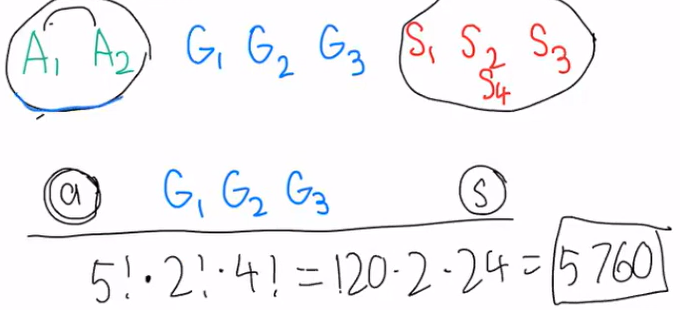 A₁ A₂ G₁ G₂ G₃ S₁ S₂ S₃
S₄
a G₁ G₂ G₃ S
5!·2!·4! = 120·2·24 = 5760